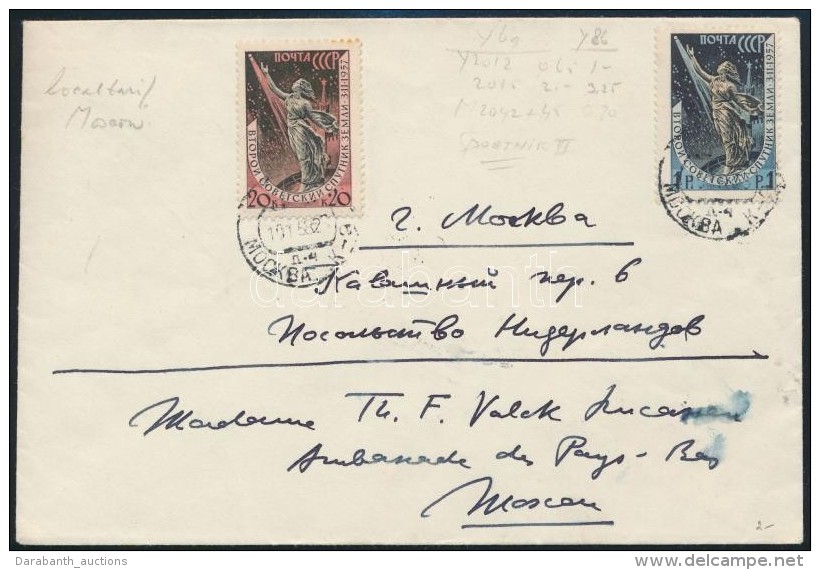 Local tarif
Moscow.
Y61 Y86
Y2012 065 1-
2015 2.- 3.25
M2042+45 0.70
Spoetnik II
ПОЧТА СССР
ВТОРОЙ СОВЕТСКИЙ СПУТНИК ЗЕМЛИ·3·XI·1957
20К. К.20
МОСКВА
ПОЧТА СССР
ВТОРОЙ СОВЕТСКИЙ СПУТНИК ЗЕМЛИ·3·XI·1957
1Р. Р.1
МОСКВА
г. Москва
Калашный пер. 6
Посольство Нидерландов
darabanth
Madame Th. F. Valck Lucassen
Ambassade des Pays-Bas
Moscou
2-
Darabanth_auctions
delcampe.net